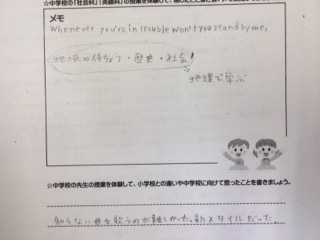 ☆中学校の「社会科」「英語科」の授業を体験して、
メモ
Whenever you're in trouble won't you stand by me,
地域の特ちょう・歴史・社会
地理で学ぶ
☆中学校の先生の授業を体験して、小学校との違いや中学校に向けて思ったことを書きましょう。
知らない曲を歌うのが難しかった。新スタイルだった。